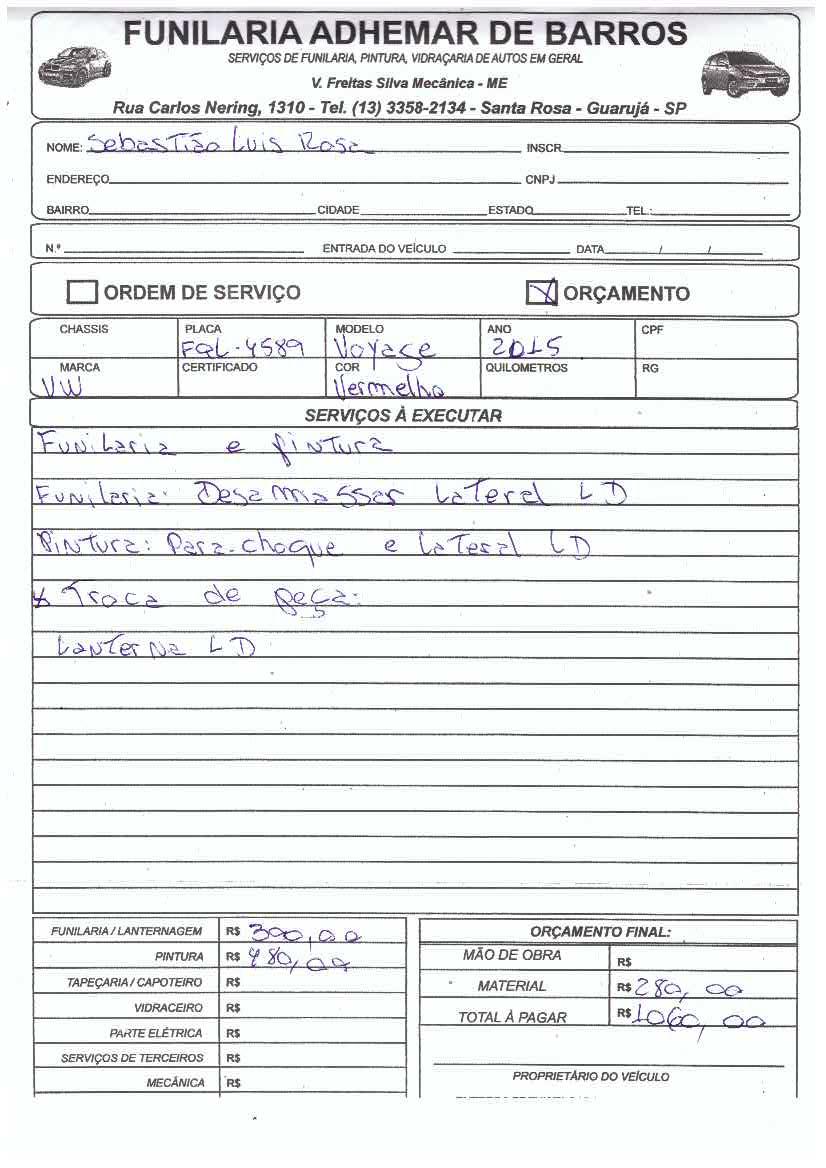 FUNILARIA ADHEMAR DE BARROS
SERVIÇOS DE FUNILARIA, PINTURA, VIDRAÇARIA DE AUTOS EM GERAL
V. Freitas Silva Mecânica - ME
Rua Carlos Nering, 1310 - Tel. (13) 3358-2134 - Santa Rosa - Guarujá - SP
NOME: Sebastião Luis Rosa INSCR.
ENDEREÇO CNPJ
BAIRRO CIDADE ESTADO TEL.:
N.º ENTRADA DO VEÍCULO DATA / /
ORDEM DE SERVIÇO X ORÇAMENTO
CHASSIS PLACA MODELO ANO CPF
FQL-4589 Voyage 2015
MARCA CERTIFICADO COR QUILOMETROS RG
VW Vermelho
SERVIÇOS À EXECUTAR
Funilaria e pintura
Funilaria: Desamassar Lateral LD
Pintura: Para-choque e Lateral LD
* Troca de peça:
Lanterna LD
FUNILARIA / LANTERNAGEM R$ 300,00 ORÇAMENTO FINAL:
PINTURA R$ 480,00 MÃO DE OBRA R$
TAPEÇARIA / CAPOTEIRO R$ MATERIAL R$ 280,00
VIDRACEIRO R$ TOTAL À PAGAR R$ 1060,00
PARTE ELÉTRICA R$
SERVIÇOS DE TERCEIROS R$
MECÂNICA R$ PROPRIETÁRIO DO VEÍCULO